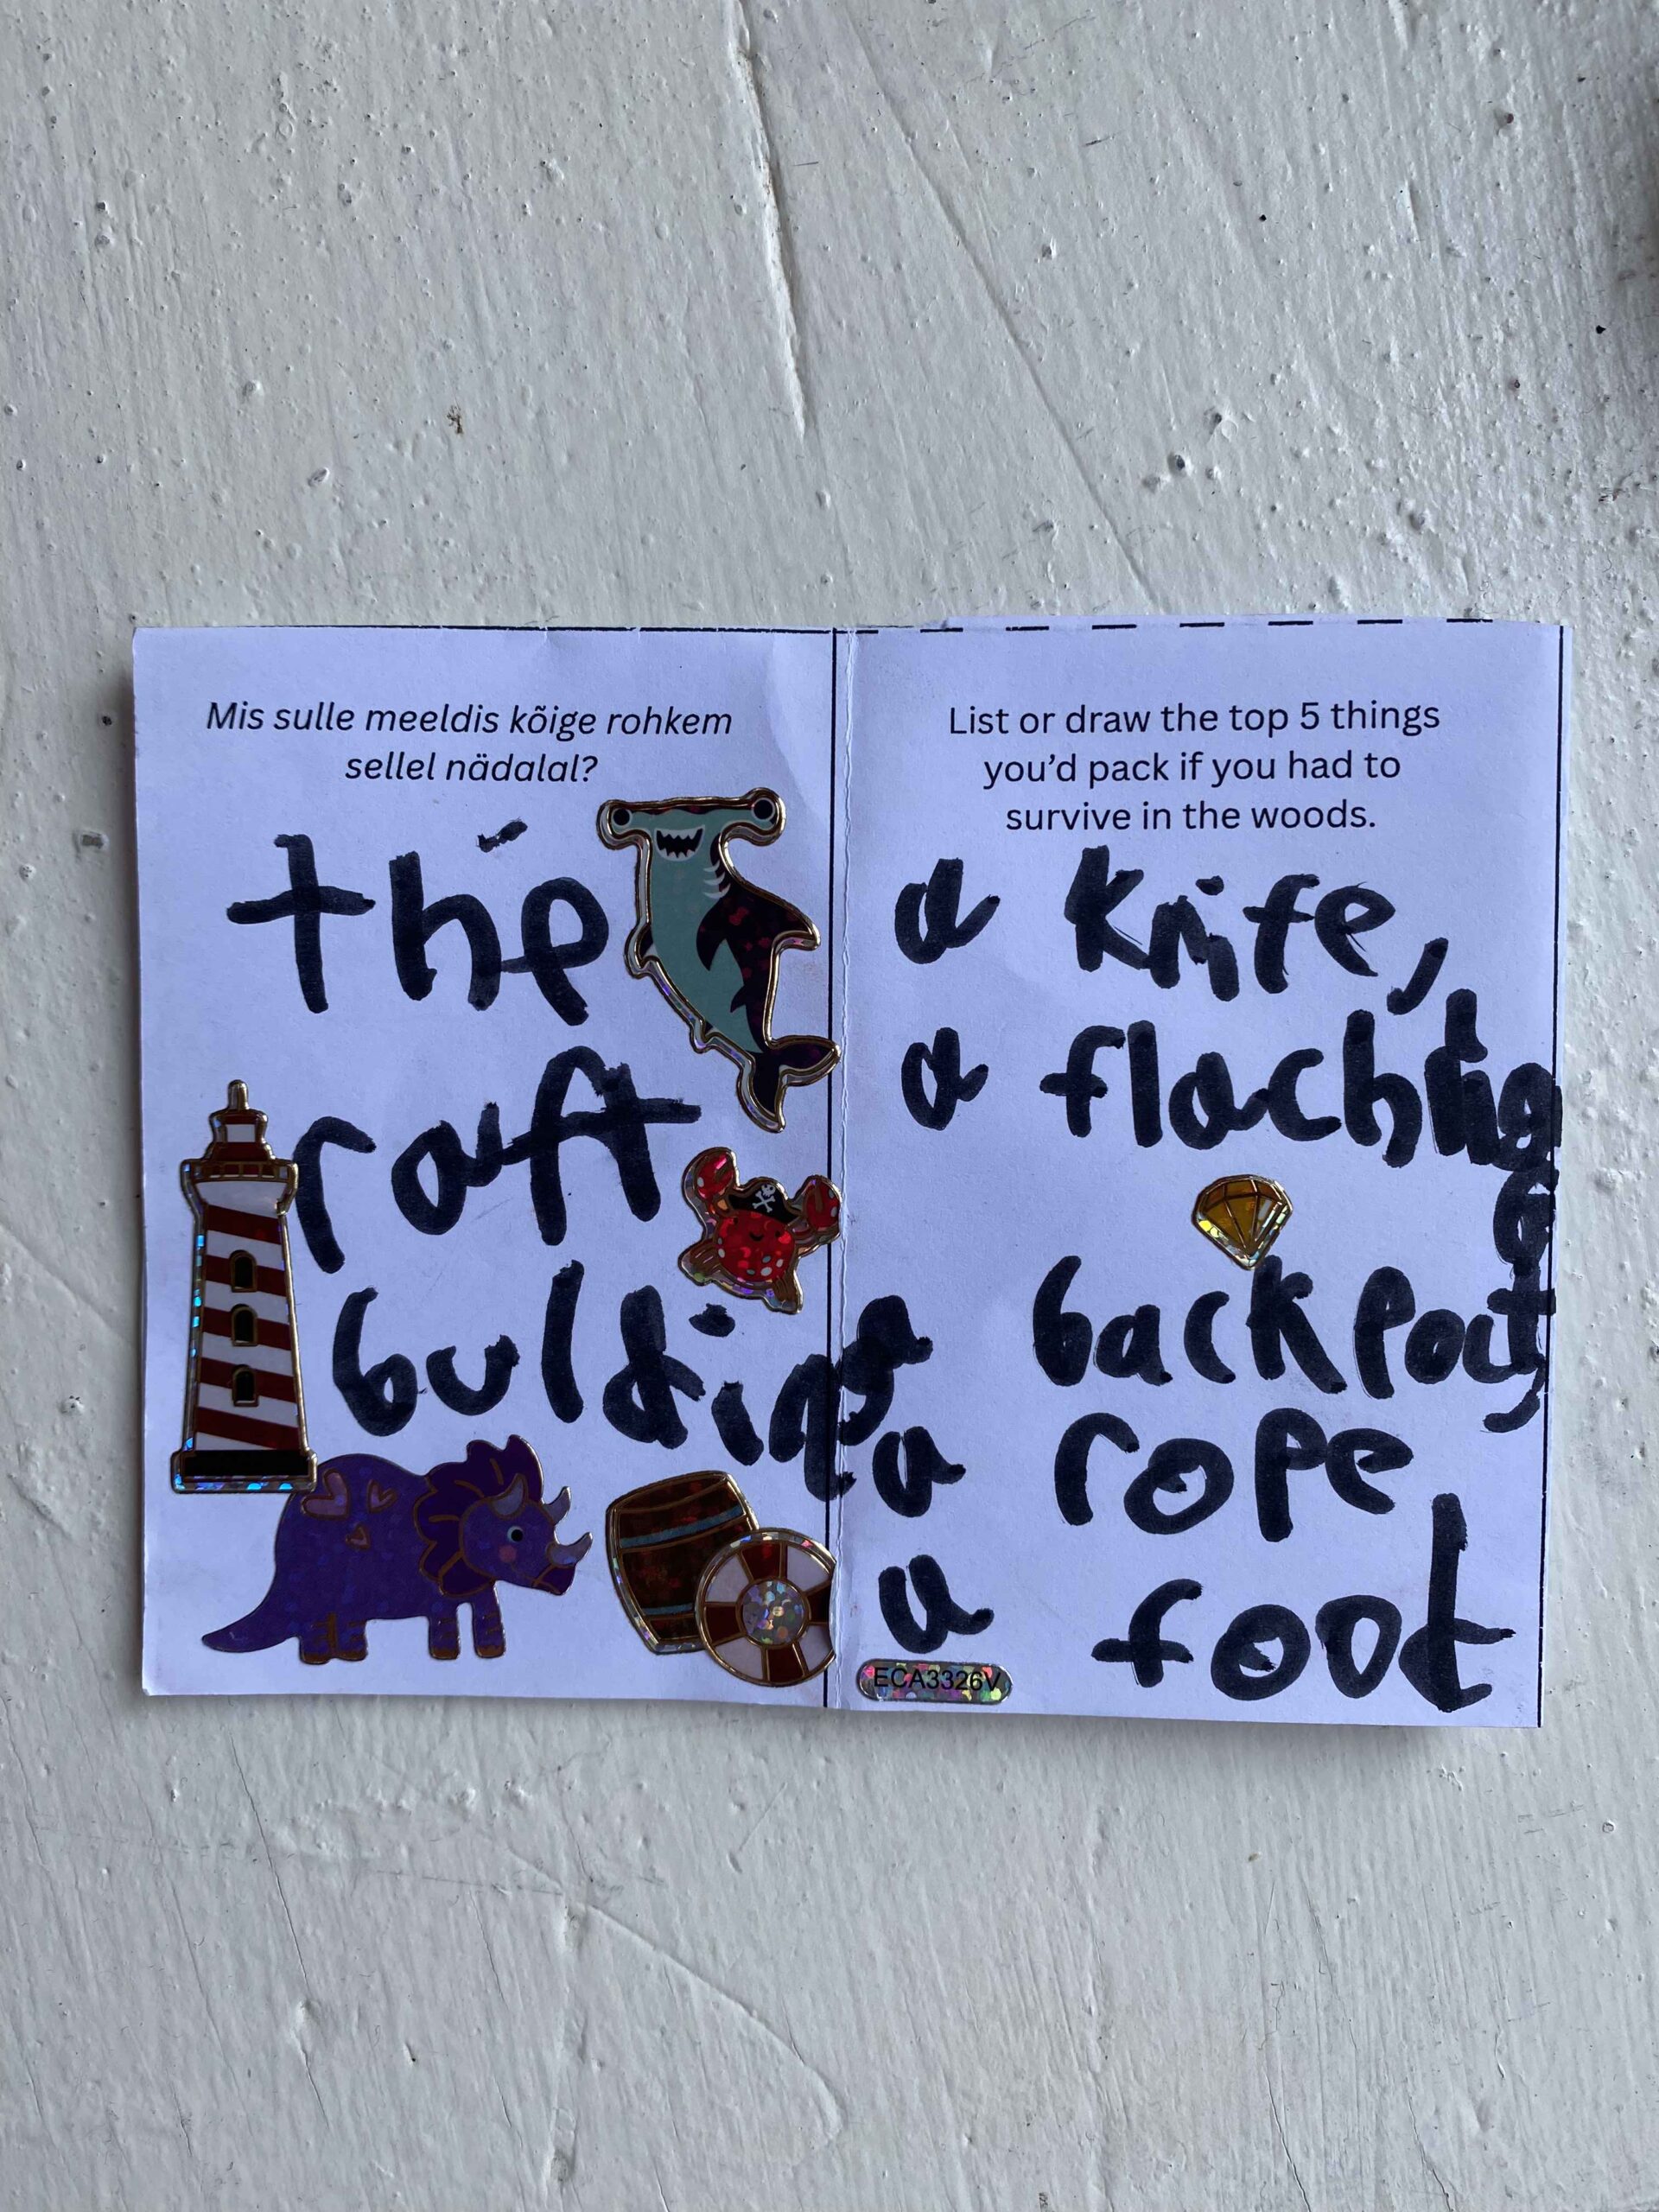 Mis sulle meeldis kõige rohkem
sellel nädalal?
the
raft
bulding
List or draw the top 5 things
you'd pack if you had to
survive in the woods.
a knife,
a flachlig
a backpack
a rope
a food
ECA3326V